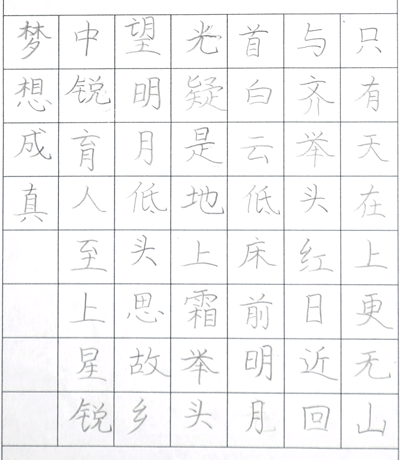 只有天在上更无山
与齐举头红日近回
首白云低床前明月
光疑是地上霜举头
望明月低头思故乡
中锐育人至上星锐
梦想成真